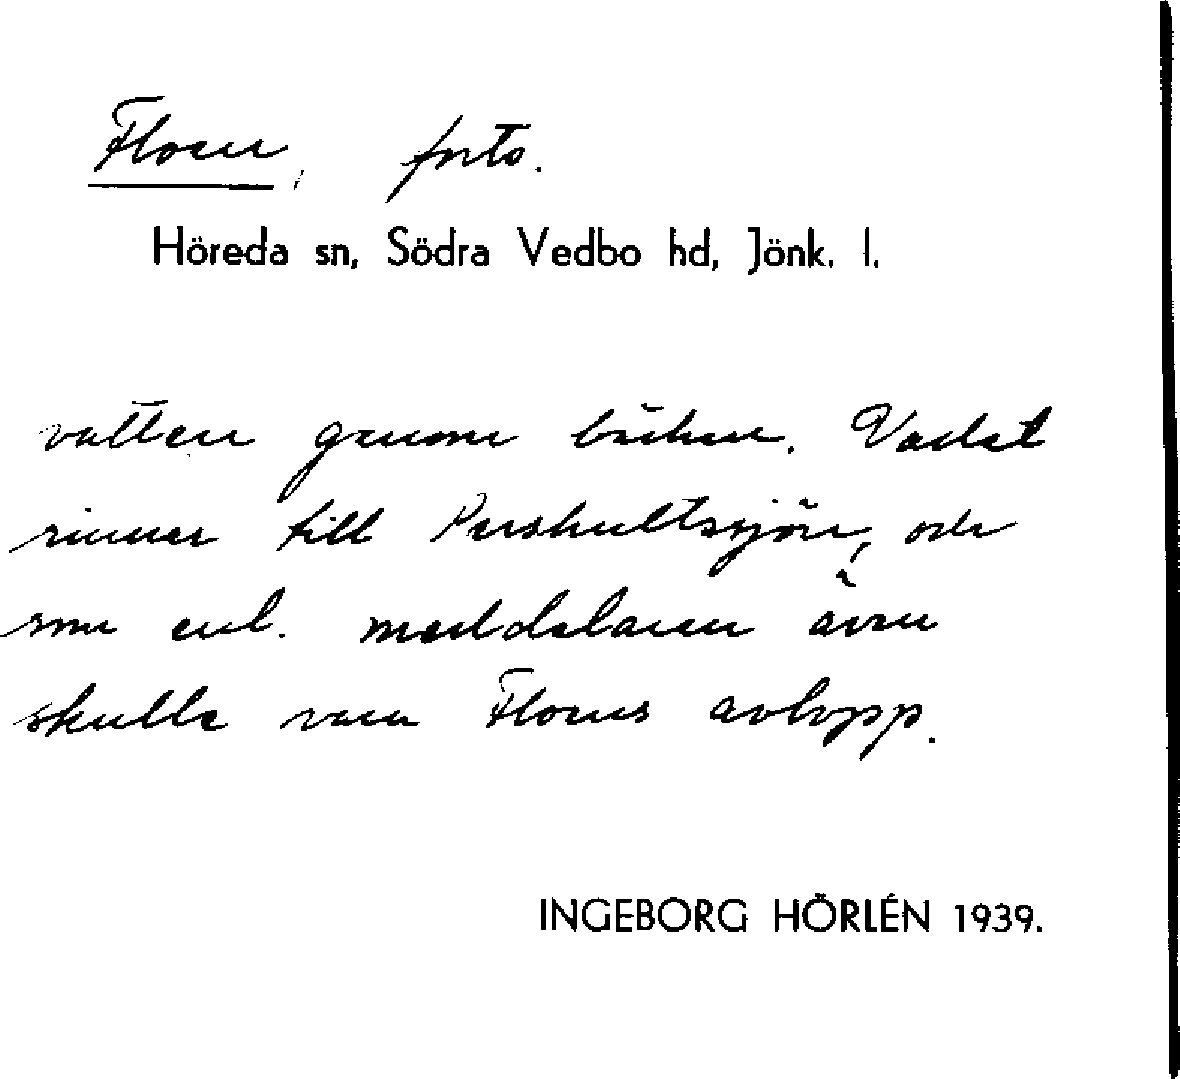 Floen, forts.
Höreda sn, Södra Vedbo hd, Jönk. l.
vatten genom bäcken. Vadet
rinner till Pershultssjön, och
som enl. meddelaren även
skulle vara Floens avlopp.
INGEBORG HÖRLÉN 1939.